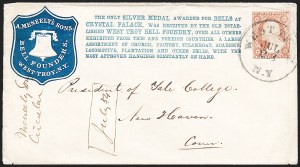 A. MENEELY'S SONS,
BELL FOUNDERS,
WEST TROY, N.Y.
THE ONLY SILVER MEDAL AWARDED FOR BELLS AT
CRYSTAL PALACE, WAS RECEIVED BY THE OLD ESTAB-
LISHED WEST TROY BELL FOUNDRY, OVER ALL OTHERS
EXHIBITED FROM THIS AND FOREIGN COUNTRIES. A LARGE
ASSORTMENT OF CHURCH, FACTORY, STEAMBOAT, ACADEMY,
LOCOMOTIVE, PLANTATION AND OTHER BELLS, WITH THE
MOST APPROVED HANGINGS CONSTANTLY ON HAND.
WEST
N.Y.
Meneely's
Circular
July 54
President of Yale College
New Haven
Conn.